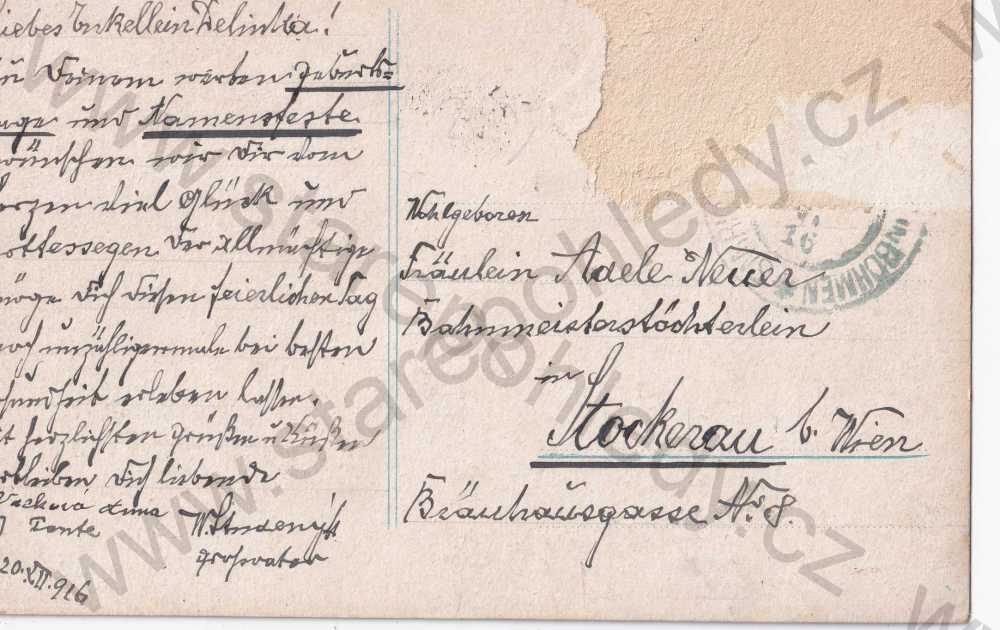 liebes Enkellein Delinka!
zu Deinem werten Geburts=
tage und Namensfeste
wünschen wir Dir vom
Herzen viel Glück und
Gottessegen der Allmächtige
möge Dich diesen feierlichen Tag
noch unzähligemale bei besten
Gesundheit erleben lassen.
Mit herzlichsten Grüßen u Küßen
verbleiben Dich liebende
Anna
Tante
W. Studený
Grosvater
20.XII.916
Wohlgeboren
Fräulein Adele Neuer
Bahnmeisterstöchterlein
in
Stockerau b. Wien
Bräuhausgasse No 8.
16
IN BÖHMEN
www.starepohledy.cz
www.starepohledy.cz